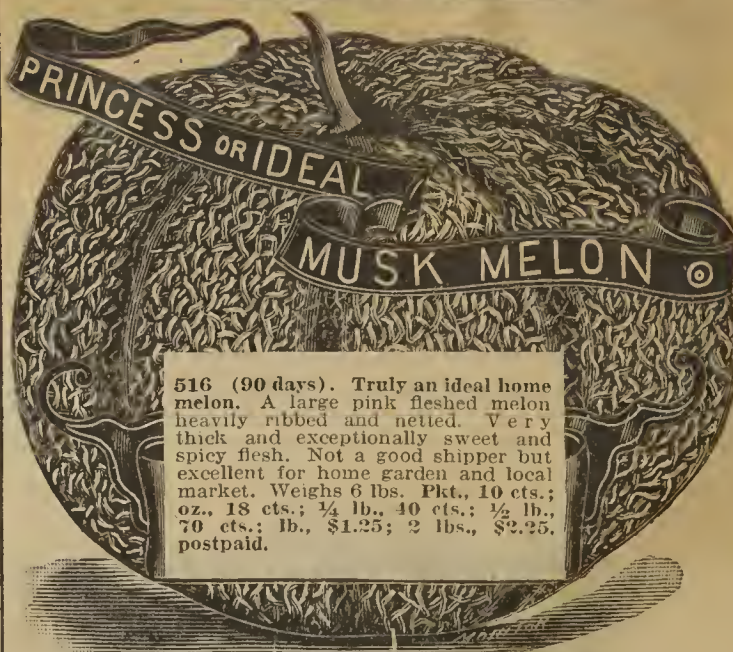 PRINCESS OR IDEAL
MUSK MELON
516 (90 days). Truly an ideal home
melon. A large pink fleshed melon
heavily ribbed and netted. Very
thick and exceptionally sweet and
spicy flesh. Not a good shipper but
excellent for home garden and local
market. Weighs 6 lbs. Pkt., 10 cts.;
oz., 18 cts.; ¼ lb., 40 cts.; ½ lb.,
70 cts.; lb., $1.25; 2 lbs., $2.25,
postpaid.